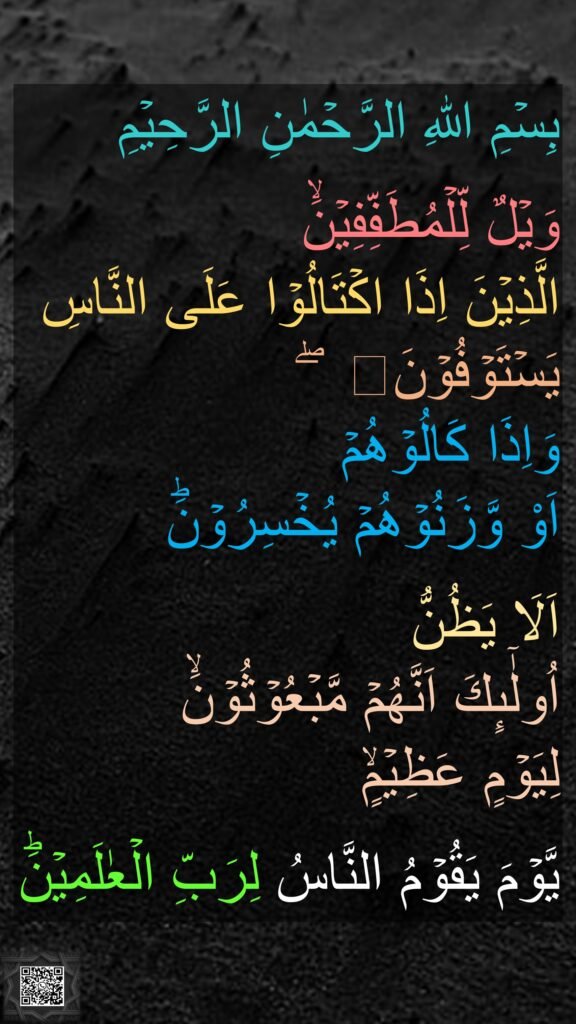 بِسۡمِ اللهِ الرَّحۡمٰنِ الرَّحِيۡمِ
وَيۡلٌ لِّلۡمُطَفِّفِيۡنَۙ
الَّذِيۡنَ اِذَا اكۡتَالُوۡا عَلَى النَّاسِ
يَسۡتَوۡفُوۡنَ□ ۖ
وَاِذَا كَالُوۡهُمۡ
اَوْ وَّزَنُوۡهُمۡ يُخۡسِرُوۡنَؕ
اَلَا يَظُنُّ
اُولٰٓٮِٕكَ اَنَّهُمۡ مَّبۡعُوۡثُوۡنَۙ
لِيَوۡمٍ عَظِيۡمٍۙ
يَّوۡمَ يَقُوۡمُ النَّاسُ لِرَبِّ الۡعٰلَمِيۡنَؕ